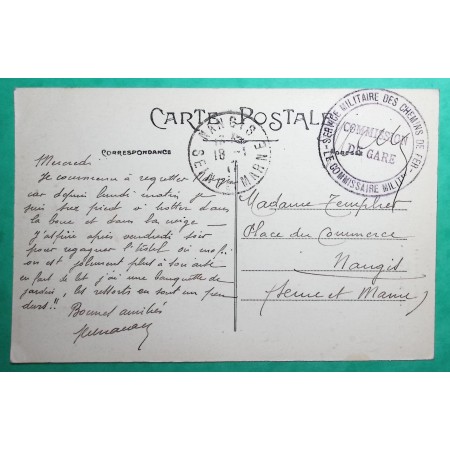 CARTE POSTALE
CORRESPONDANCE
NANGIS
18 - 1
17
SEINE ET MARNE
SERVICE MILITAIRE DES CHEMINS DE FER
COMMISSION
DE GARE
LE COMMISSAIRE MILITAIRE
Mercredi
Je commence à regretter Nangis
car depuis lundi matin je
suis sur pied à trotter dans
la boue et dans la neige —
J'aspire après vendredi soir
pour regagner l'hôtel où ma foi
on est joliment plus à son aise
en fait de lit j'ai une banquette de
jardin, les ressorts en sont un peu
durs!!
Bonnes amitiés
Madame Templier
Place du Commerce
Nangis
(Seine et Marne)